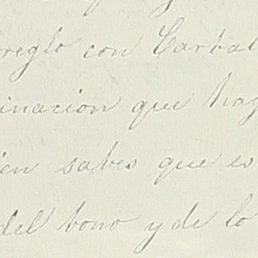 reglo con Carbal
inacion que hag
en sabes que es
del bono y de lo